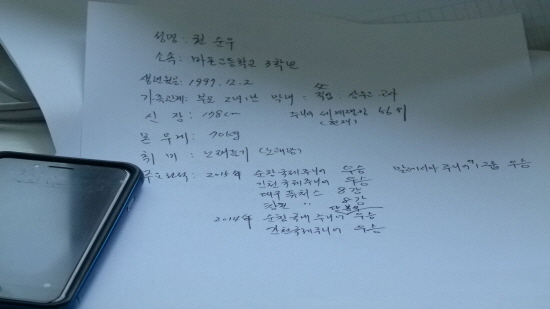 성명: 권 순우
소속: 마포고등학교 3학년
생년월일: 1997.12.2
가족관계: 부모 2녀1남 막내 :
신 장: 178cm 주니어 세계랭킹 46위
(현재)
몸 무게: 70kg
취 미: 노래듣기 (노래방)
주요전적: 2013年 순창국제주니어 우승 말레이시아 주니어 그룹 우승
김천국제주니어 우승
대구 퓨처스 8강
8강
단복식
2014年 순창국제주니어 우승
김천국제주니어 우승